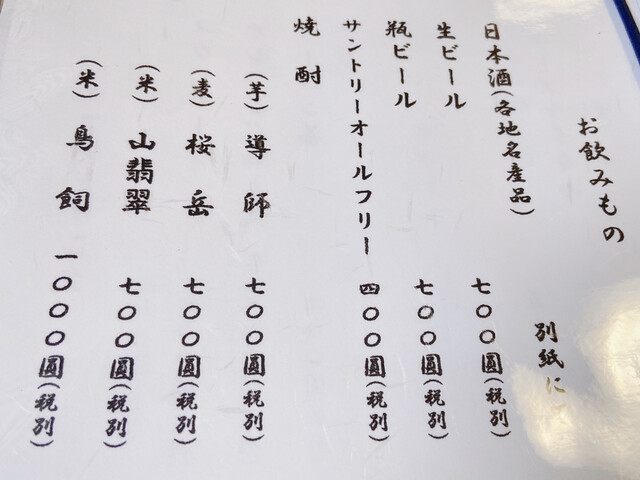 お飲みもの
日本酒(各地名産品) 別紙に
生ビール 七〇〇圓(税別)
瓶ビール 七〇〇圓(税別)
サントリーオールフリー 四〇〇圓(税別)
焼酎
(芋) 導師 七〇〇圓(税別)
(麦) 桜岳 七〇〇圓(税別)
(米) 山翡翠 七〇〇圓(税別)
(米) 鳥飼 一〇〇〇圓(税別)